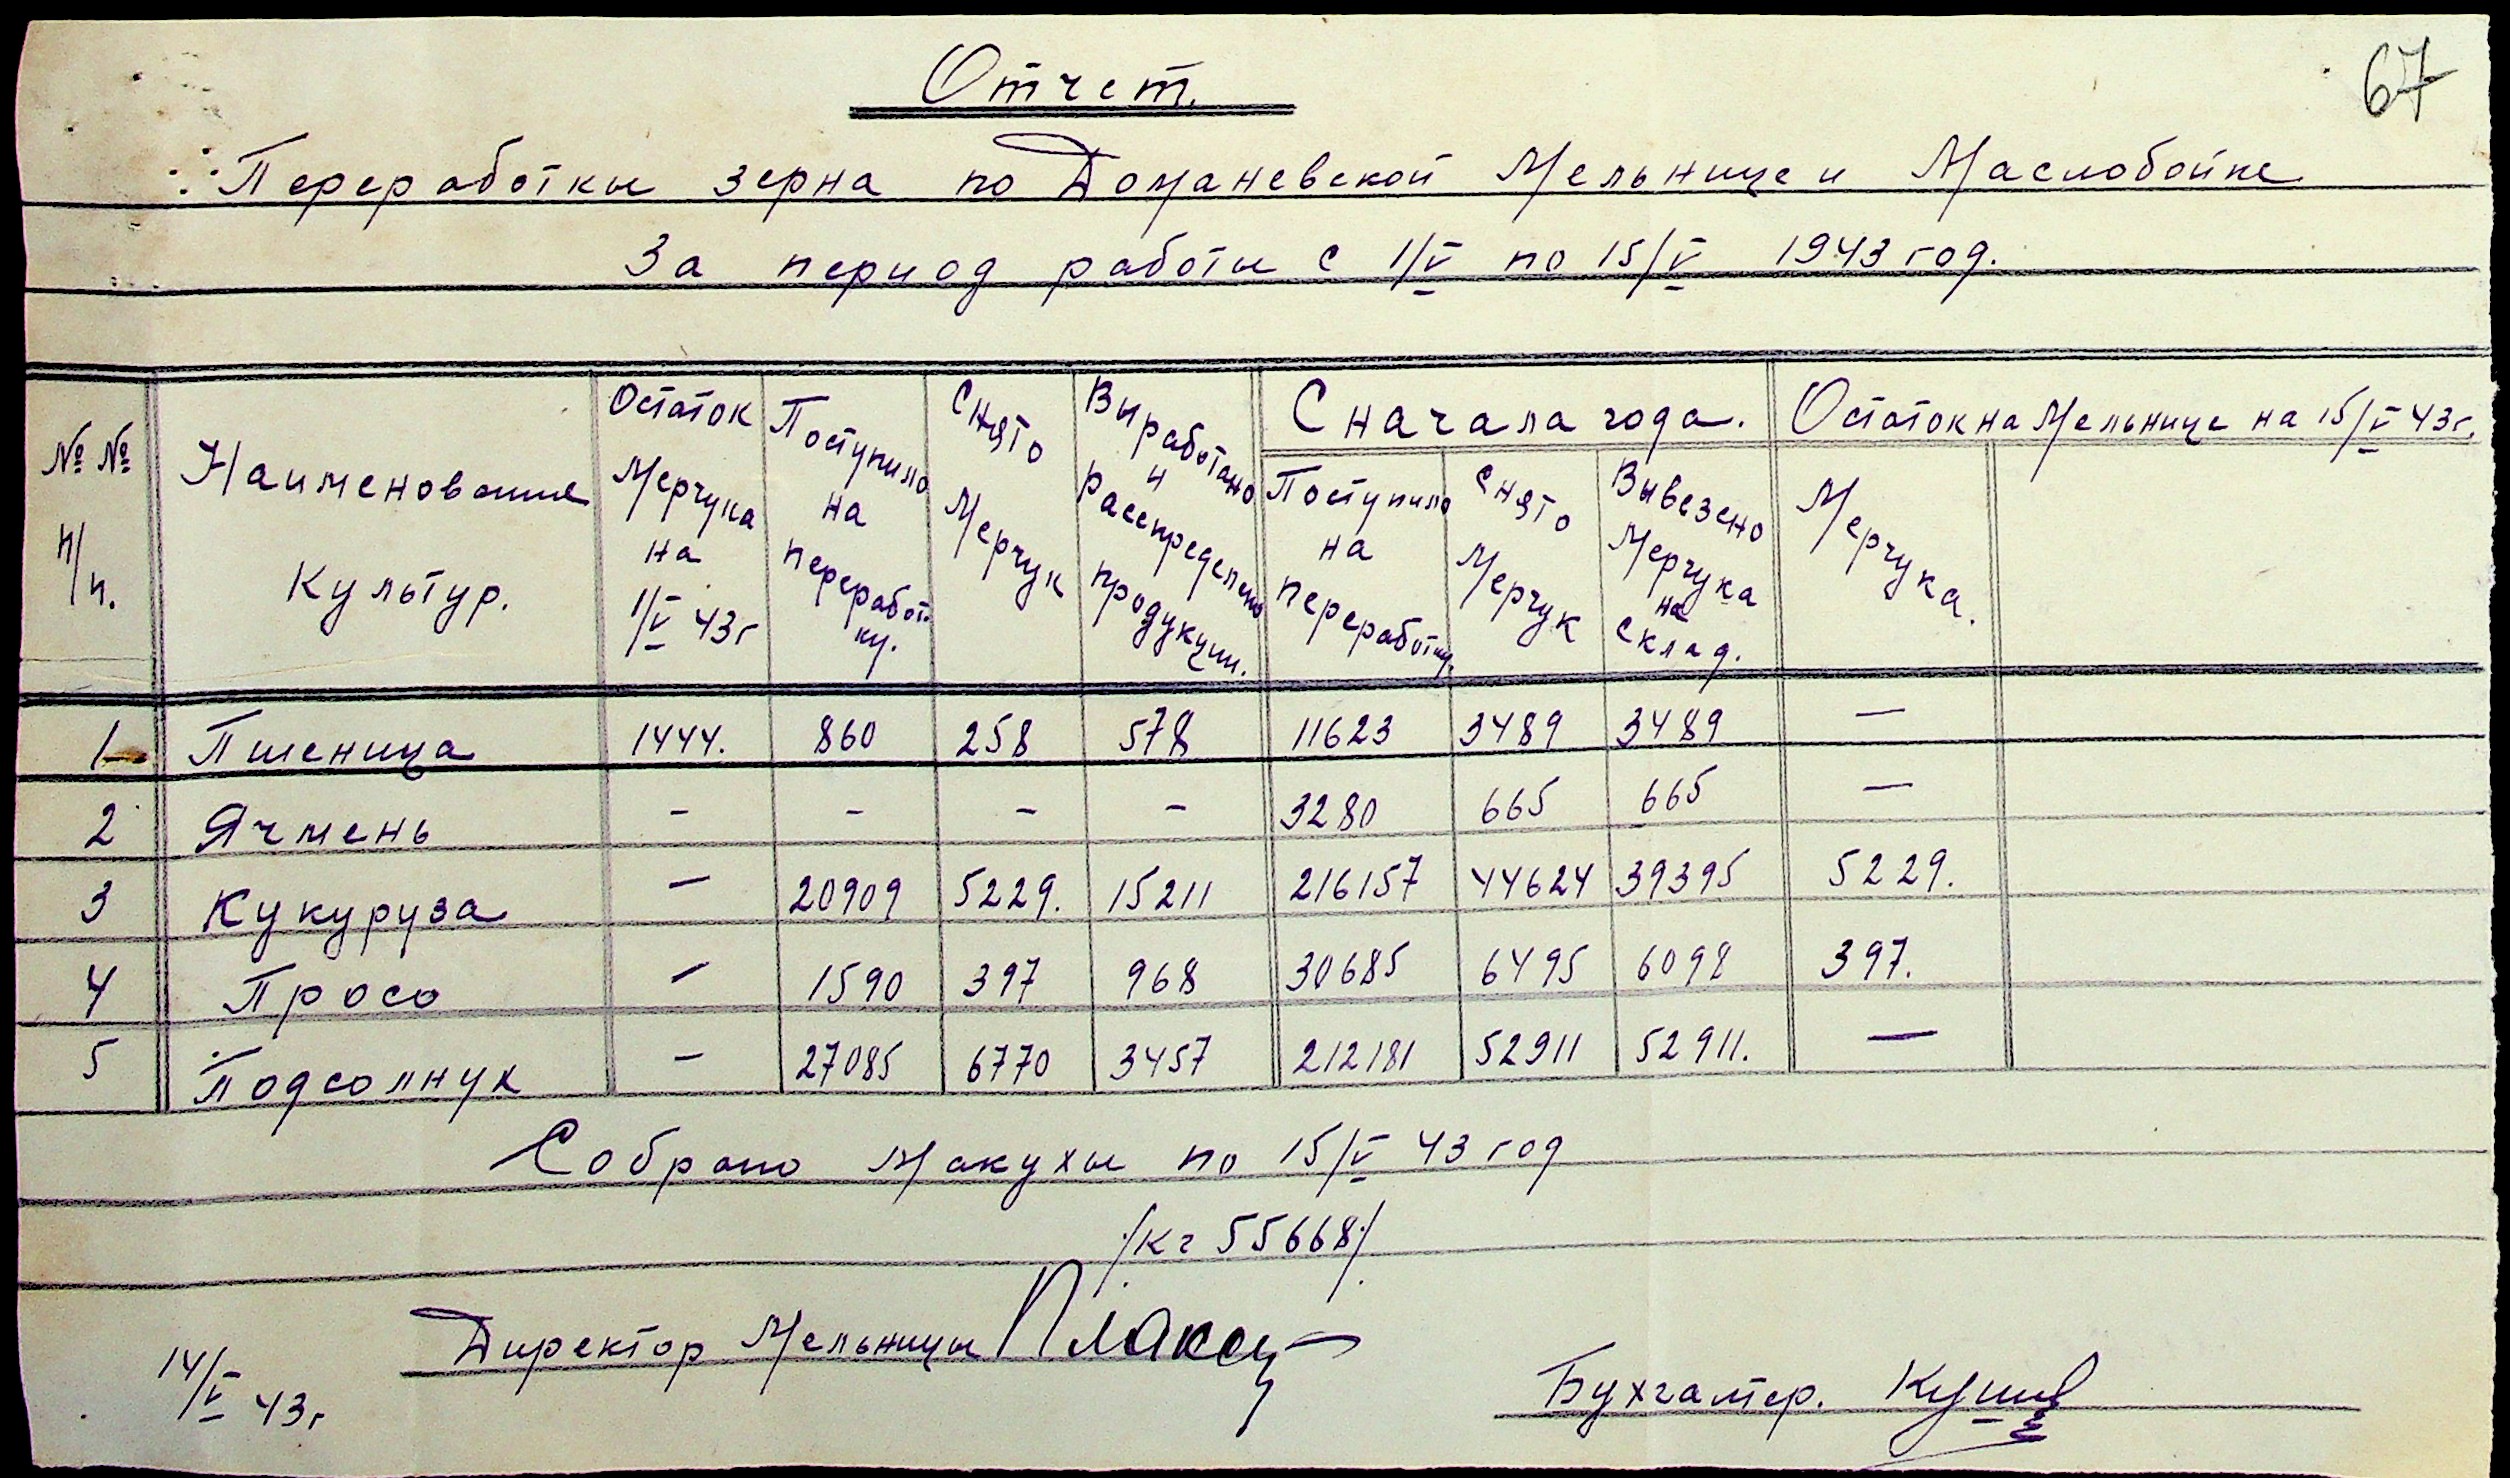 67
Отчет.
Переработки зерна по Доманевской Мельнице и Маслобойке
За период работы с 1/V по 15/V 1943 год.
№ № п/п. Наименование Культур. Остаток Мерчука на 1/V 43г Поступило на переработ. ку. Снято Мерчук Выработано и распределено продукции. С начала года. Остаток на Мельнице на 15/V 43г.
Поступило на переработку. Снято Мерчук Вывезено Мерчука на склад. Мерчука.
1 Пшеница 1444. 860 258 578 11623 3489 3489 —
2 Ячмень - - - - 3280 665 665 —
3 Кукуруза - 20909 5229. 15211 216157 44624 39395 5229.
4 Просо - 1590 397 968 30685 6495 6098 397.
5 Подсолнук - 27085 6770 3457 212181 52911 52911. —
Собрано Макухи по 15/V 43 год
/кг 55668/
Директор Мельницы
14/V 43г
Бухгалтер.